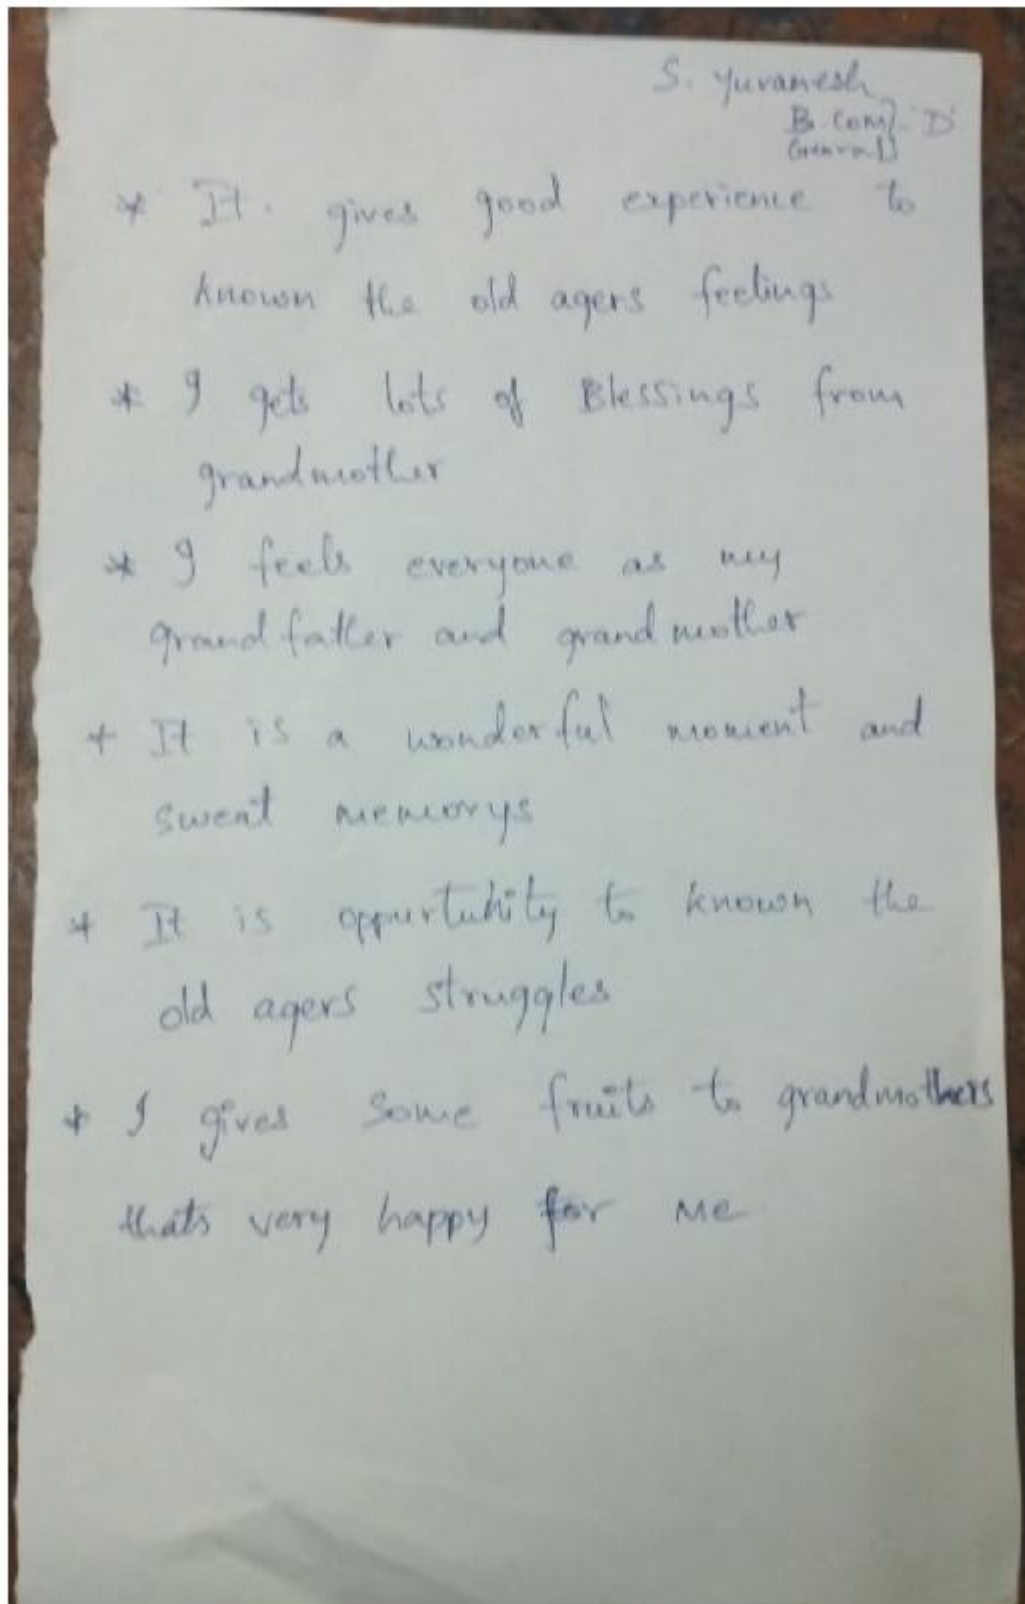 S. Yuvanesh
B. Com] - 'D'
General]
* It. gives good experience to
known the old agers feelings
* I gets lots of Blessings from
grandmother
* I feels everyone as my
grandfather and grandmother
+ It is a wonderful moment and
sweat memorys
* It is oppurtunity to known the
old agers struggles
* I gives some fruits to grandmothers
thats very happy for me